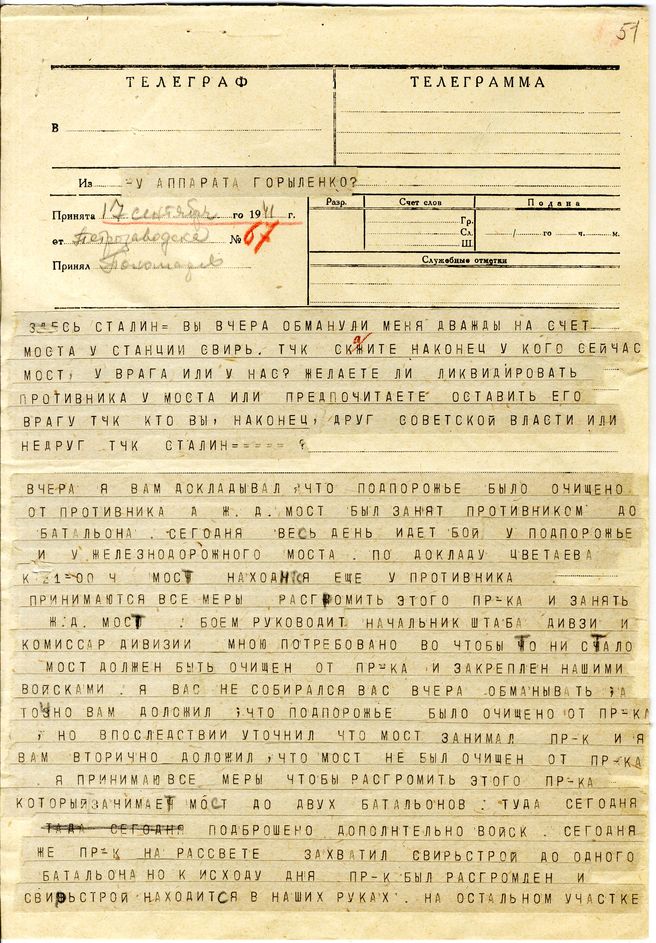 51
ТЕЛЕГРАФ ТЕЛЕГРАММА
В
Из -У АППАРАТА ГОРЫЛЕНКО?
Принята 17 сентября го 1941 г. Разр. Счет слов Подана
от Петрозаводска № 67 Гр. Сл. Ш. / го ч. м.
Принял Служебные отметки
ЗДЕСЬ СТАЛИН= ВЫ ВЧЕРА ОБМАНУЛИ МЕНЯ ДВАЖДЫ НА СЧЕТ
МОСТА У СТАНЦИИ СВИРЬ. ТЧК СКАЖИТЕ НАКОНЕЦ У КОГО СЕЙЧАС
МОСТ, У ВРАГА ИЛИ У НАС? ЖЕЛАЕТЕ ЛИ ЛИКВИДИРОВАТЬ
ПРОТИВНИКА У МОСТА ИЛИ ПРЕДПОЧИТАЕТЕ ОСТАВИТЬ ЕГО
ВРАГУ ТЧК КТО ВЫ, НАКОНЕЦ, ДРУГ СОВЕТСКОЙ ВЛАСТИ ИЛИ
НЕДРУГ ТЧК СТАЛИН===== ?
ВЧЕРА Я ВАМ ДОКЛАДЫВАЛ ,ЧТО ПОДПОРОЖЬЕ БЫЛО ОЧИЩЕНО
ОТ ПРОТИВНИКА А Ж. Д. МОСТ БЫЛ ЗАНЯТ ПРОТИВНИКОМ ДО
БАТАЛЬОНА . СЕГОДНЯ ВЕСЬ ДЕНЬ ИДЕТ БОЙ У ПОДПОРОЖЬЕ
И У ЖЕЛЕЗНОДОРОЖНОГО МОСТА . ПО ДОКЛАДУ ЦВЕТАЕВА
К 21=00 Ч МОСТ НАХОДИТСЯ ЕЩЕ У ПРОТИВНИКА .
ПРИНИМАЮТСЯ ВСЕ МЕРЫ РАСГРОМИТЬ ЭТОГО ПР-КА И ЗАНЯТЬ
Ж.Д. МОСТ . БОЕМ РУКОВОДИТ НАЧАЛЬНИК ШТАБА ДИВЗИ И
КОМИССАР ДИВИЗИИ МНОЮ ПОТРЕБОВАНО ВО ЧТОБЫ ТО НИ СТАЛО
МОСТ ДОЛЖЕН БЫТЬ ОЧИЩЕН ОТ ПР-КА И ЗАКРЕПЛЕН НАШИМИ
ВОЙСКАМИ . Я ВАС НЕ СОБИРАЛСЯ ВАС ВЧЕРА ОБМАНЫВАТЬ ,А
ТОЧНО ВАМ ДОЛОЖИЛ ,ЧТО ПОДПОРОЖЬЕ БЫЛО ОЧИЩЕНО ОТ ПР-КА
, НО ВПОСЛЕДСТВИИ УТОЧНИЛ ЧТО МОСТ ЗАНИМАЛ ПР-К И Я
ВАМ ВТОРИЧНО ДОЛОЖИЛ ,ЧТО МОСТ НЕ БЫЛ ОЧИЩЕН ОТ ПР-КА
. Я ПРИНИМАЮ ВСЕ МЕРЫ ЧТОБЫ РАСГРОМИТЬ ЭТОГО ПР-КА
КОТОРЫЙ ЗАНИМАЕТ МОСТ ДО ДВУХ БАТАЛЬОНОВ . ТУДА СЕГОДНЯ
ТАДА СЕГОДНЯ ПОДБРОШЕНО ДОПОЛНТЕЛЬНО ВОЙСК . СЕГОДНЯ
ЖЕ ПР-К НА РАССВЕТЕ ЗАХВАТИЛ СВИРЬСТРОЙ ДО ОДНОГО
БАТАЛЬОНА НО К ИСХОДУ ДНЯ ПР-К БЫЛ РАСГРОМЛЕН И
СВИРЬСТРОЙ НАХОДИТСЯ В НАШИХ РУКАХ . НА ОСТАЛЬНОМ УЧАСТКЕ